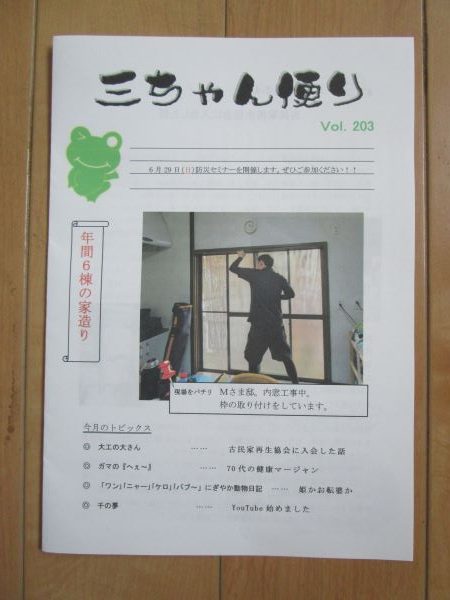 三ちゃん便り
Vol. 203
6月29日(日)防災セミナーを開催します。ぜひご参加ください!!
年間6棟の家造り
現場をパチリ Mさま邸。内窓工事中。
枠の取り付けをしています。
今月のトピックス
◎ 大工の大さん …… 古民家再生協会に入会した話
◎ ガマの『へぇ~』 …… 70代の健康マージャン
◎ 「ワン」「ニャー」「ケロ」「バブ~」にぎやか動物日記 …… 姫かお転婆か
◎ 千の夢 …… YouTube始めました